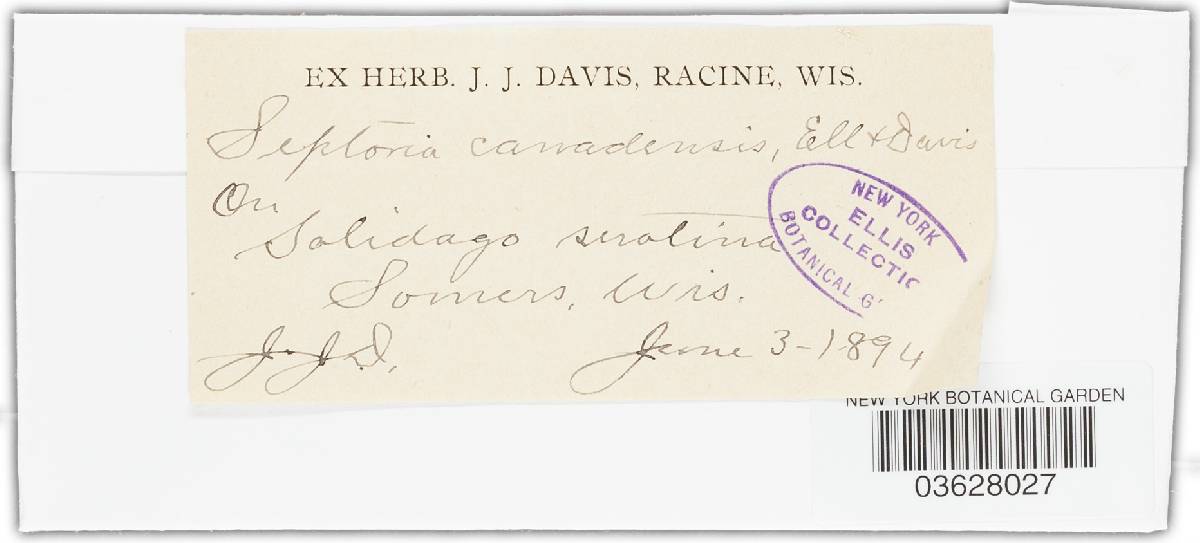 EX HERB. J. J. DAVIS, RACINE, WIS.
Septoria canadensis, Ell & Davis
On
Solidago serotina
Somers, Wis.
J. J. D.
June 3-1894
NEW YORK
ELLIS
COLLECTIO
BOTANICAL G
NEW YORK BOTANICAL GARDEN
03628027